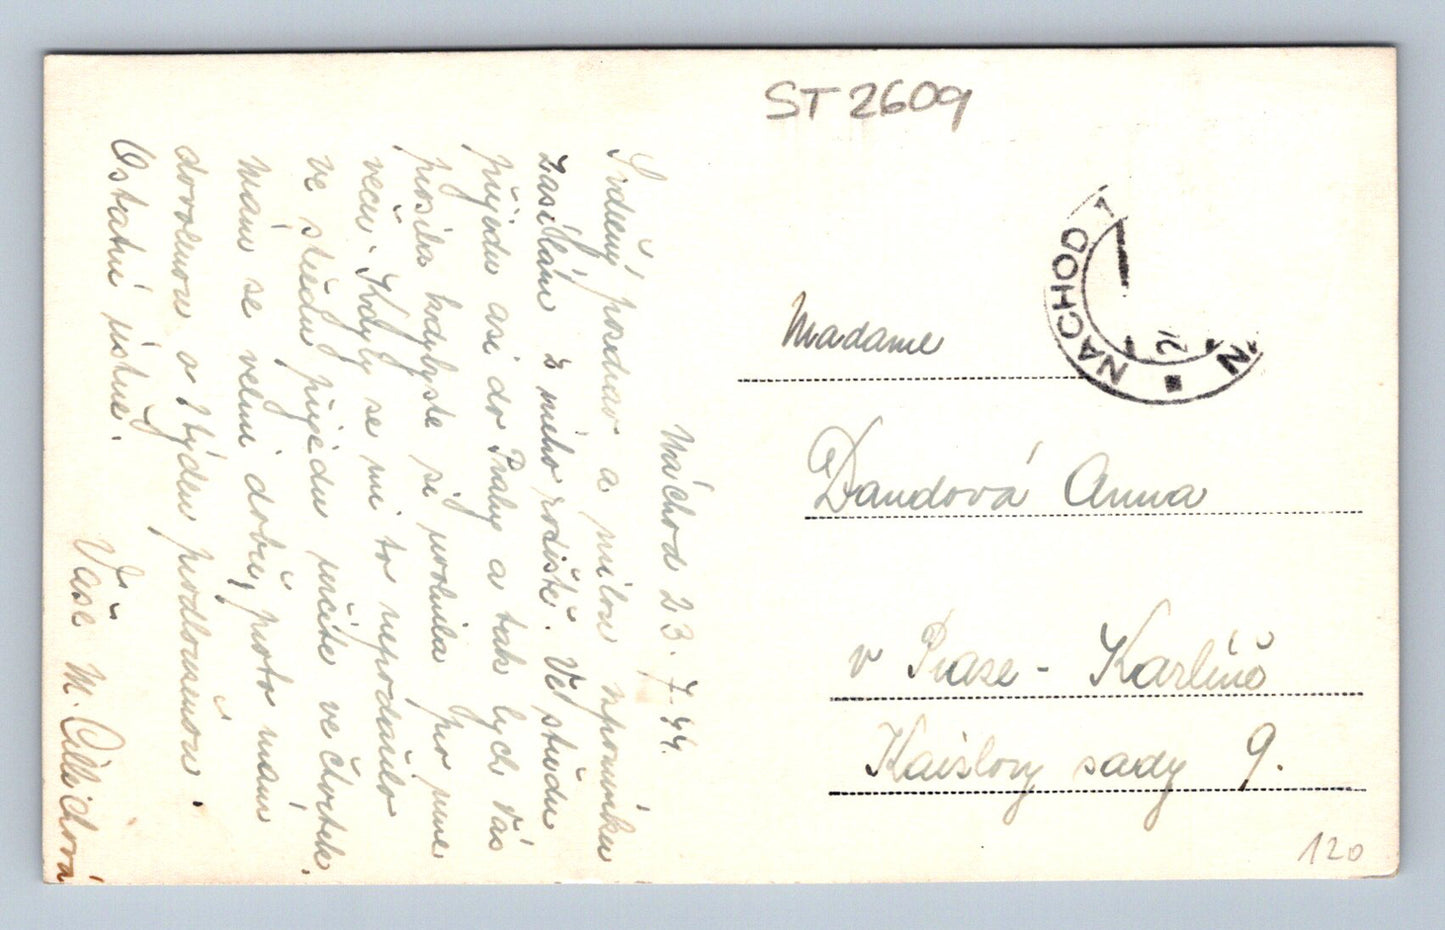 ST 2609
Náchod 23. 7. 44.
Srdečný pozdrav a milou upomínku
zasílám z mého rodiště. Ve středu
přijedu asi do Prahy a tak bych Vás
prosila kdybyste si uvolnila pro mne
večer. Kdyby se mi to nepodařilo
ve středu přijedu určitě ve čtvrtek.
Mám se velmi dobře, proto mám
dovolenou o týden prodlouženou.
Ostatní ústně.
Vaše M.
NÁCHOD
Madame
Dandová Anna
v Praze - Karlíně
Kaizlovy sady 9.
120